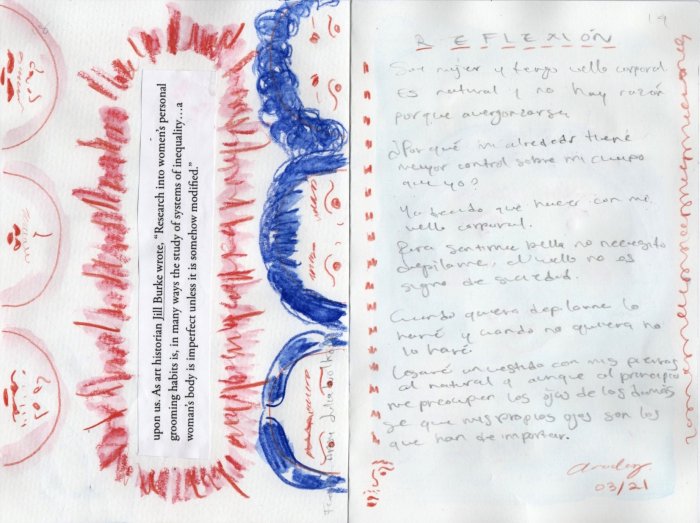 upon us. As art historian Jill Burke wrote, "Research into women's personal
grooming habits is, in many ways the study of systems of inequality…a
woman's body is imperfect unless it is somehow modified."
19
REFLEXIÓN
Soy mujer y tengo vello corporal
Es natural y no hay razón
porque avergonzarse
¿Porqué mi alrededor tiene
mayor control sobre mi cuerpo
que yo?
Yo decido que hacer con mi
vello corporal.
Para sentirme bella no necesito
depilarme, el vello no es
signo de suciedad.
Cuando quiera depilarme lo
haré y cuando no quiera no
lo haré.
Usaré un vestido con mis piernas
al natural y aunque al principio
me preocupen los ojos de los demás
se que mis propios ojos son los
que han de importar.
03/21